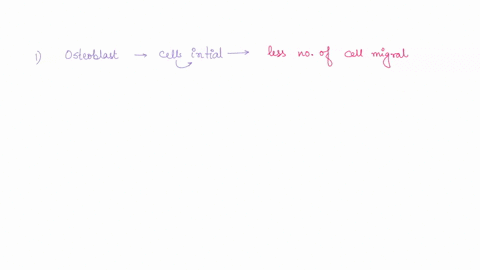 1) Osteoblast → cell intial → less no. of cell migral